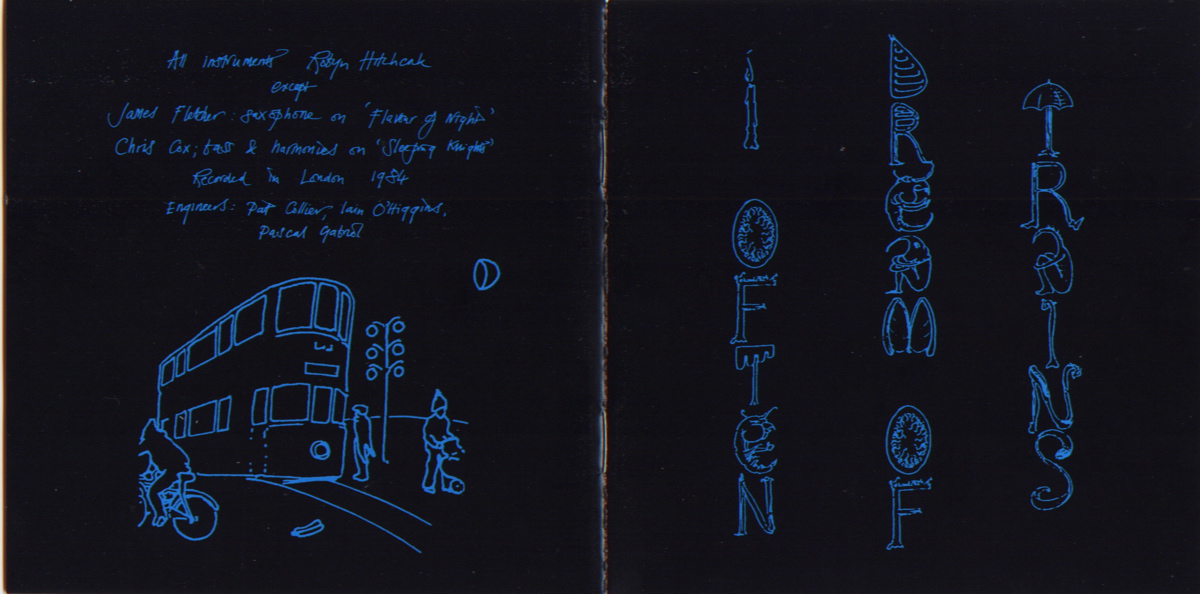 All instruments Robyn Hitchcock
except
James Fletcher: saxophone on 'Flavour of Night'
Chris Cox; bass & harmonies on 'Sleeping Knights'
Recorded in London 1984
Engineers: Pat Collier, Iain O'Higgins,
Pascal Gabriel
I
OFTEN
DREAM
OF
TRAINS